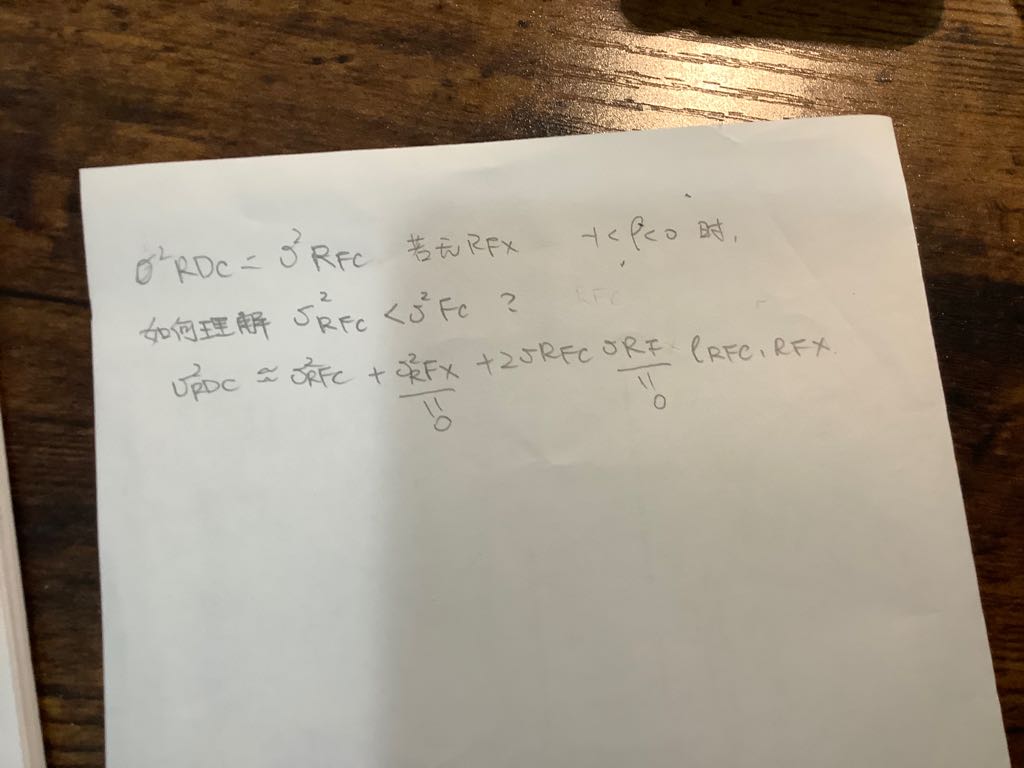 σ²RDC = σ²RFC 若无RFX -1<ρ<0 时,
如何理解 σ²RFC < σ²FC ?
σ²RDC ≈ σ²RFC + σ²RFX + 2σRFC σRF ρRFC, RFX
|| ||
0 0